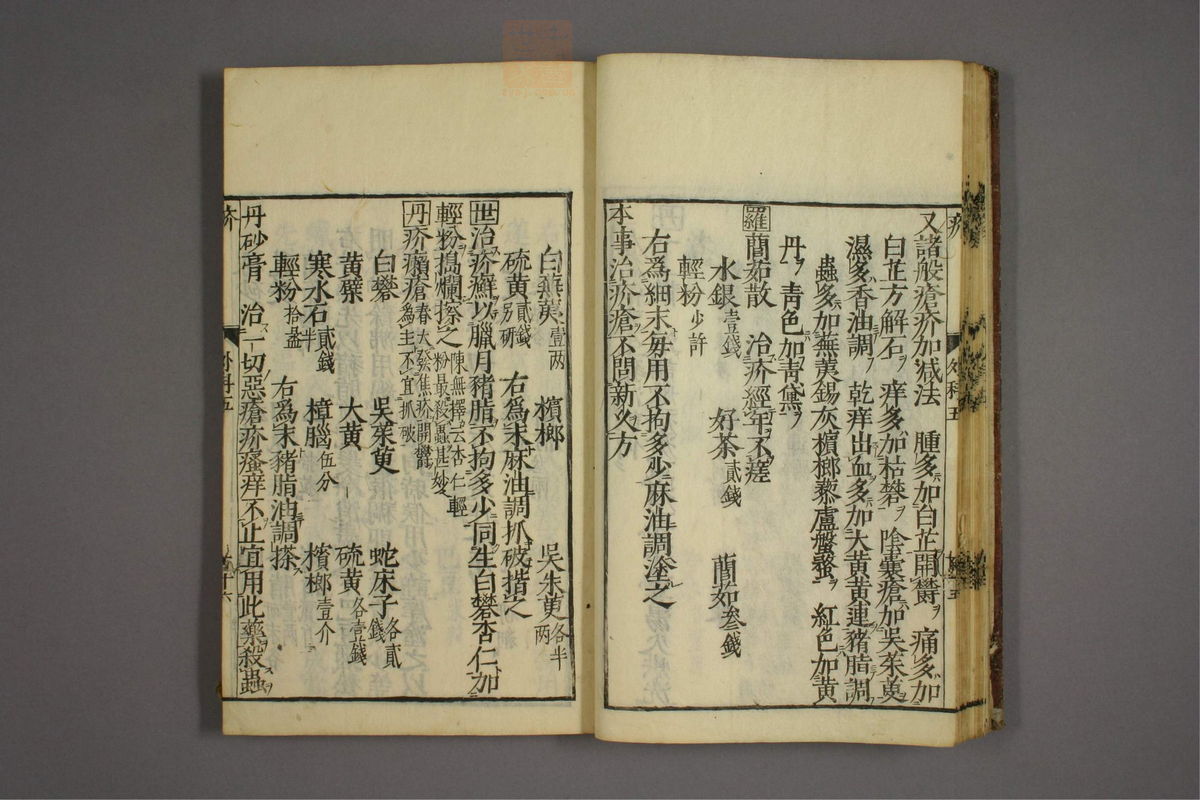 又諸般瘡疥加减法 腫多加白芷開欝ヲ 痛多加
白芷方解石ヲ 痒多加枯礬ヲ 陰囊瘡加吳茱萸ヲ
濕多香油調ヲ 乾痒出血多加大黄黄連猪脂調
蟲多加蕪荑錫灰檳榔藜蘆盤蝥ヲ 紅色加黄
丹ヲ 青色加青黛ヲ
羅 䕡茹散 治疥經年不瘥
水銀壹錢 好茶貳錢 䕡茹叁錢
輕粉少許
右爲細末每用不拘多少麻油調塗之
本事治疥瘡不問新久方
疥 外科五
白蕪荑壹两 檳榔 吳朱萸各半两
硫黄貳錢另研 右爲末麻油調抓破揩之
世 治疥癬以臘月猪脂不拘多少同生白礬杏仁加
輕粉搗爛擦之 陳無擇云杏仁輕粉最殺蟲甚妙
丹 疥癩瘡 春大發焦疥開欝爲主不宜抓破
白礬 吳茱萸 蛇床子各貳錢
黄蘗 大黄 硫黄各壹錢
寒水石貳錢半 樟腦伍分 檳榔壹介
輕粉拾盝 右爲末猪脂油調搽
丹砂膏 治一切惡瘡疥瘙痒不止宜用此藥殺蟲
疥 外科五 十六